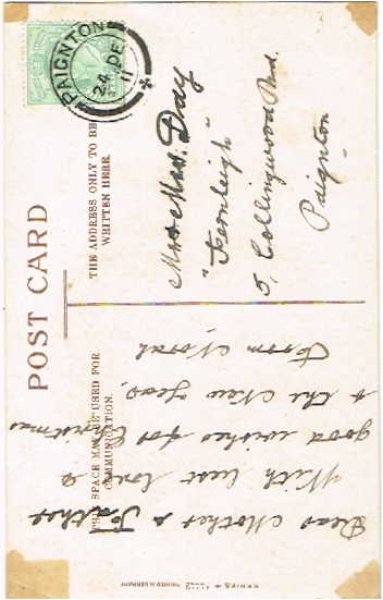 POST CARD
THIS SPACE MAY BE USED FOR
COMMUNICATION.
THE ADDRESS ONLY TO BE
WRITTEN HERE.
PAIGNTON
24 DE
11
Dear Mother & Father
With best love &
good wishes for Christmas
& the New Year,
From Norah
Mr & Mrs. Day
"Fernleigh"
5, Collingwood Rd.
Paignton
SERIES
PRINTED IN GERMANY